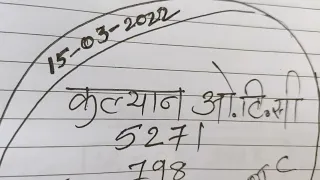 15-03-2022
कल्यान ओ.टि.सी
5271
798